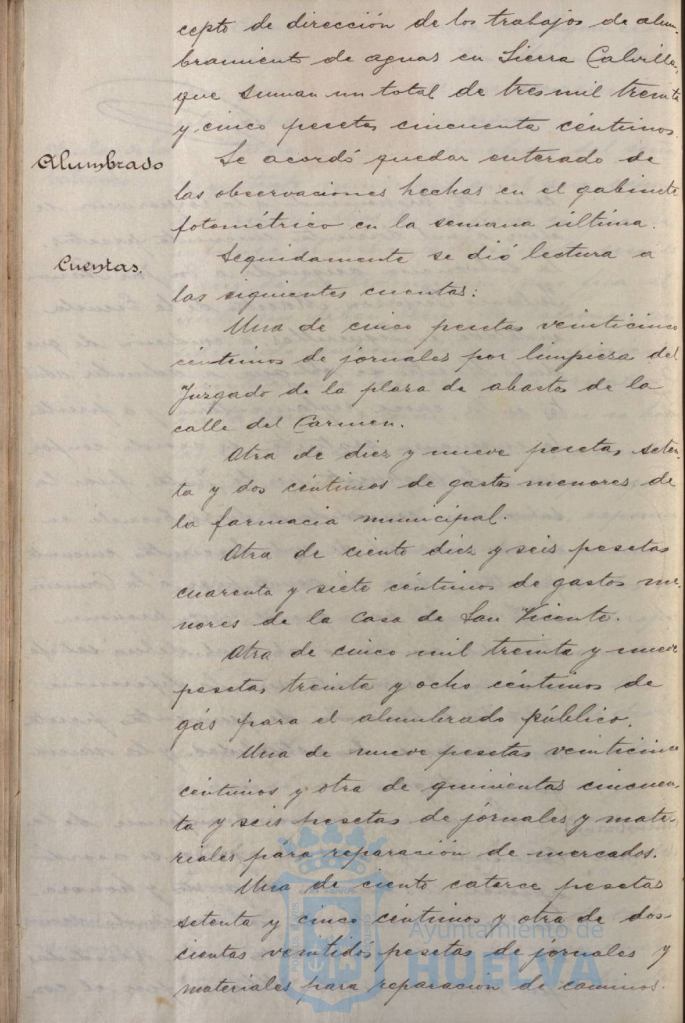 cepto de dirección de los trabajos de alum-
bramiento de aguas en Sierra Calvilla,
que suman un total de tres mil treinta
y cinco pesetas cincuenta céntimos.
Alumbrado
Se acordó quedar enterado de
las observaciones hechas en el gabinete
fotométrico en la semana última.
Cuentas.
Seguidamente se dió lectura a
las siguientes cuentas:
Una de cinco pesetas veinticinco
céntimos de jornales por limpieza del
Juzgado de la plaza de abastos de la
calle del Carmen.
Otra de diez y nueve pesetas seten-
ta y dos céntimos de gastos menores de
la farmacia municipal.
Otra de ciento diez y seis pesetas
cuarenta y siete céntimos de gastos me-
nores de la Casa de San Vicente.
Otra de cinco mil treinta y nueve
pesetas treinta y ocho céntimos de
gás para el alumbrado público.
Una de nueve pesetas veinticinco
céntimos y otra de quinientas cincuen-
ta y seis pesetas de jornales y mate-
riales para reparación de mercados.
Una de ciento catorce pesetas
setenta y cinco céntimos y otra de dos-
cientas veintidós pesetas de jornales y
materiales para reparación de caminos.
Ayuntamiento de
HUELVA